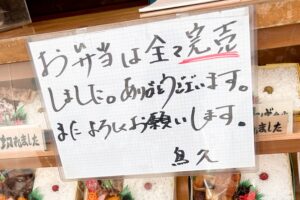 お弁当は全て完売
しました。ありがとうございます。
またよろしくお願いします。
鳥久
れました